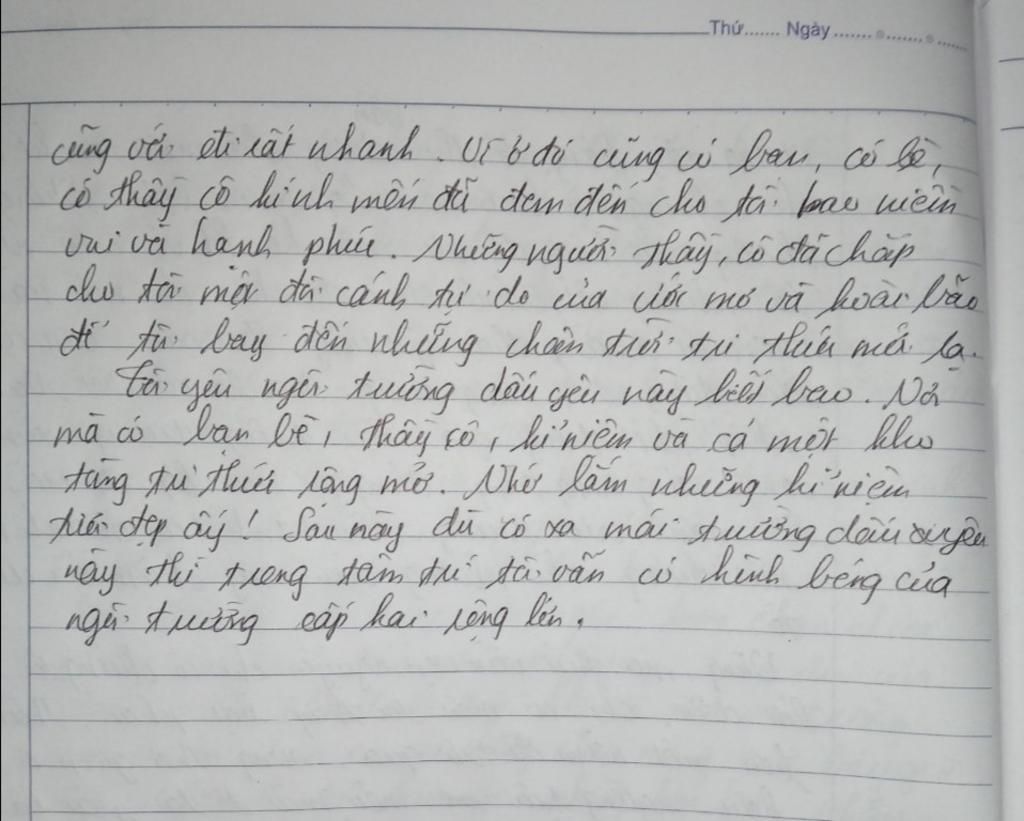 Thứ....... Ngày.......................
cũng với đi rất nhanh. Vì ở đó cũng có bạn, có bè,
có thầy cô kính mến đã đem đến cho tôi bao niềm
vui và hạnh phúc. Những người thầy, cô đã chắp
cho tôi một đôi cánh tự do của ước mơ và hoài bão
để tôi bay đến những chân trời tri thức mới lạ.
Tôi yêu ngôi trường dấu yêu này biết bao. Nơi
mà có bạn bè, thầy cô, kỉ niệm và cả một kho
tàng tri thức rộng mở. Nhớ lắm những kỉ niệm
tươi đẹp ấy! Sau này dù có xa mái trường dấu yêu
này thì trong tâm trí tôi vẫn có hình bóng của
ngôi trường cấp hai rộng lớn.